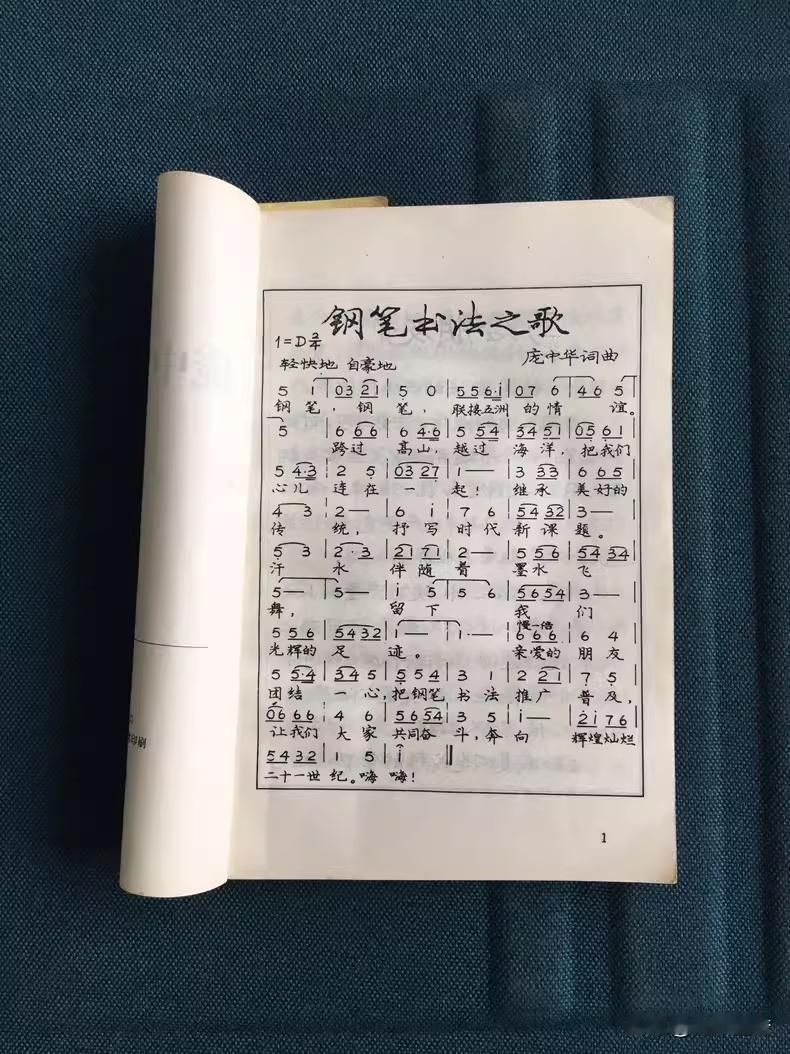 钢笔书法之歌
1=D 2/4
庞中华词曲
轻快地 自豪地
5 1 | 03 21 | 5 0 | 5 5 6·i | 07 6 | 4 6 5 |
钢笔，钢笔，联接五洲的情谊。
5 | 6 66 | 6 4·6 | 5 54 | 34 51 | 05 61 |
跨过高山，越过海洋，把我们
5 4·3 | 2 5 | 03 27 | 1— | 3 33 | 6 65 |
心儿连在一起！继承美好的
4 3 | 2— | 6 i | 7 6 | 54 32 | 3— |
传统，抒写时代新课题。
5 3 | 2·3 | 21 71 | 2— | 5 56 | 54 34 |
汗水伴随着墨水飞
5— | 5— | i 5 | 5 6 | 5654 | 3— |
舞，留下我们
慢一倍
5 56 | 5432 | 1— | 1·— | 6 66 | 6 4 |
光辉的足迹。亲爱的朋友
5 5·4 | 34 5 | 5 54 | 3 1 | 2 21 | 7 5 |
团结一心，把钢笔书法推广普及，
06 66 | 4 6 | 56 54 | 3 5 | i— | 2i 76 |
让我们大家共同奋斗，奔向辉煌灿烂
5432 | 1 5 | i ‖
二十一世纪。嗨嗨！
1
印刷